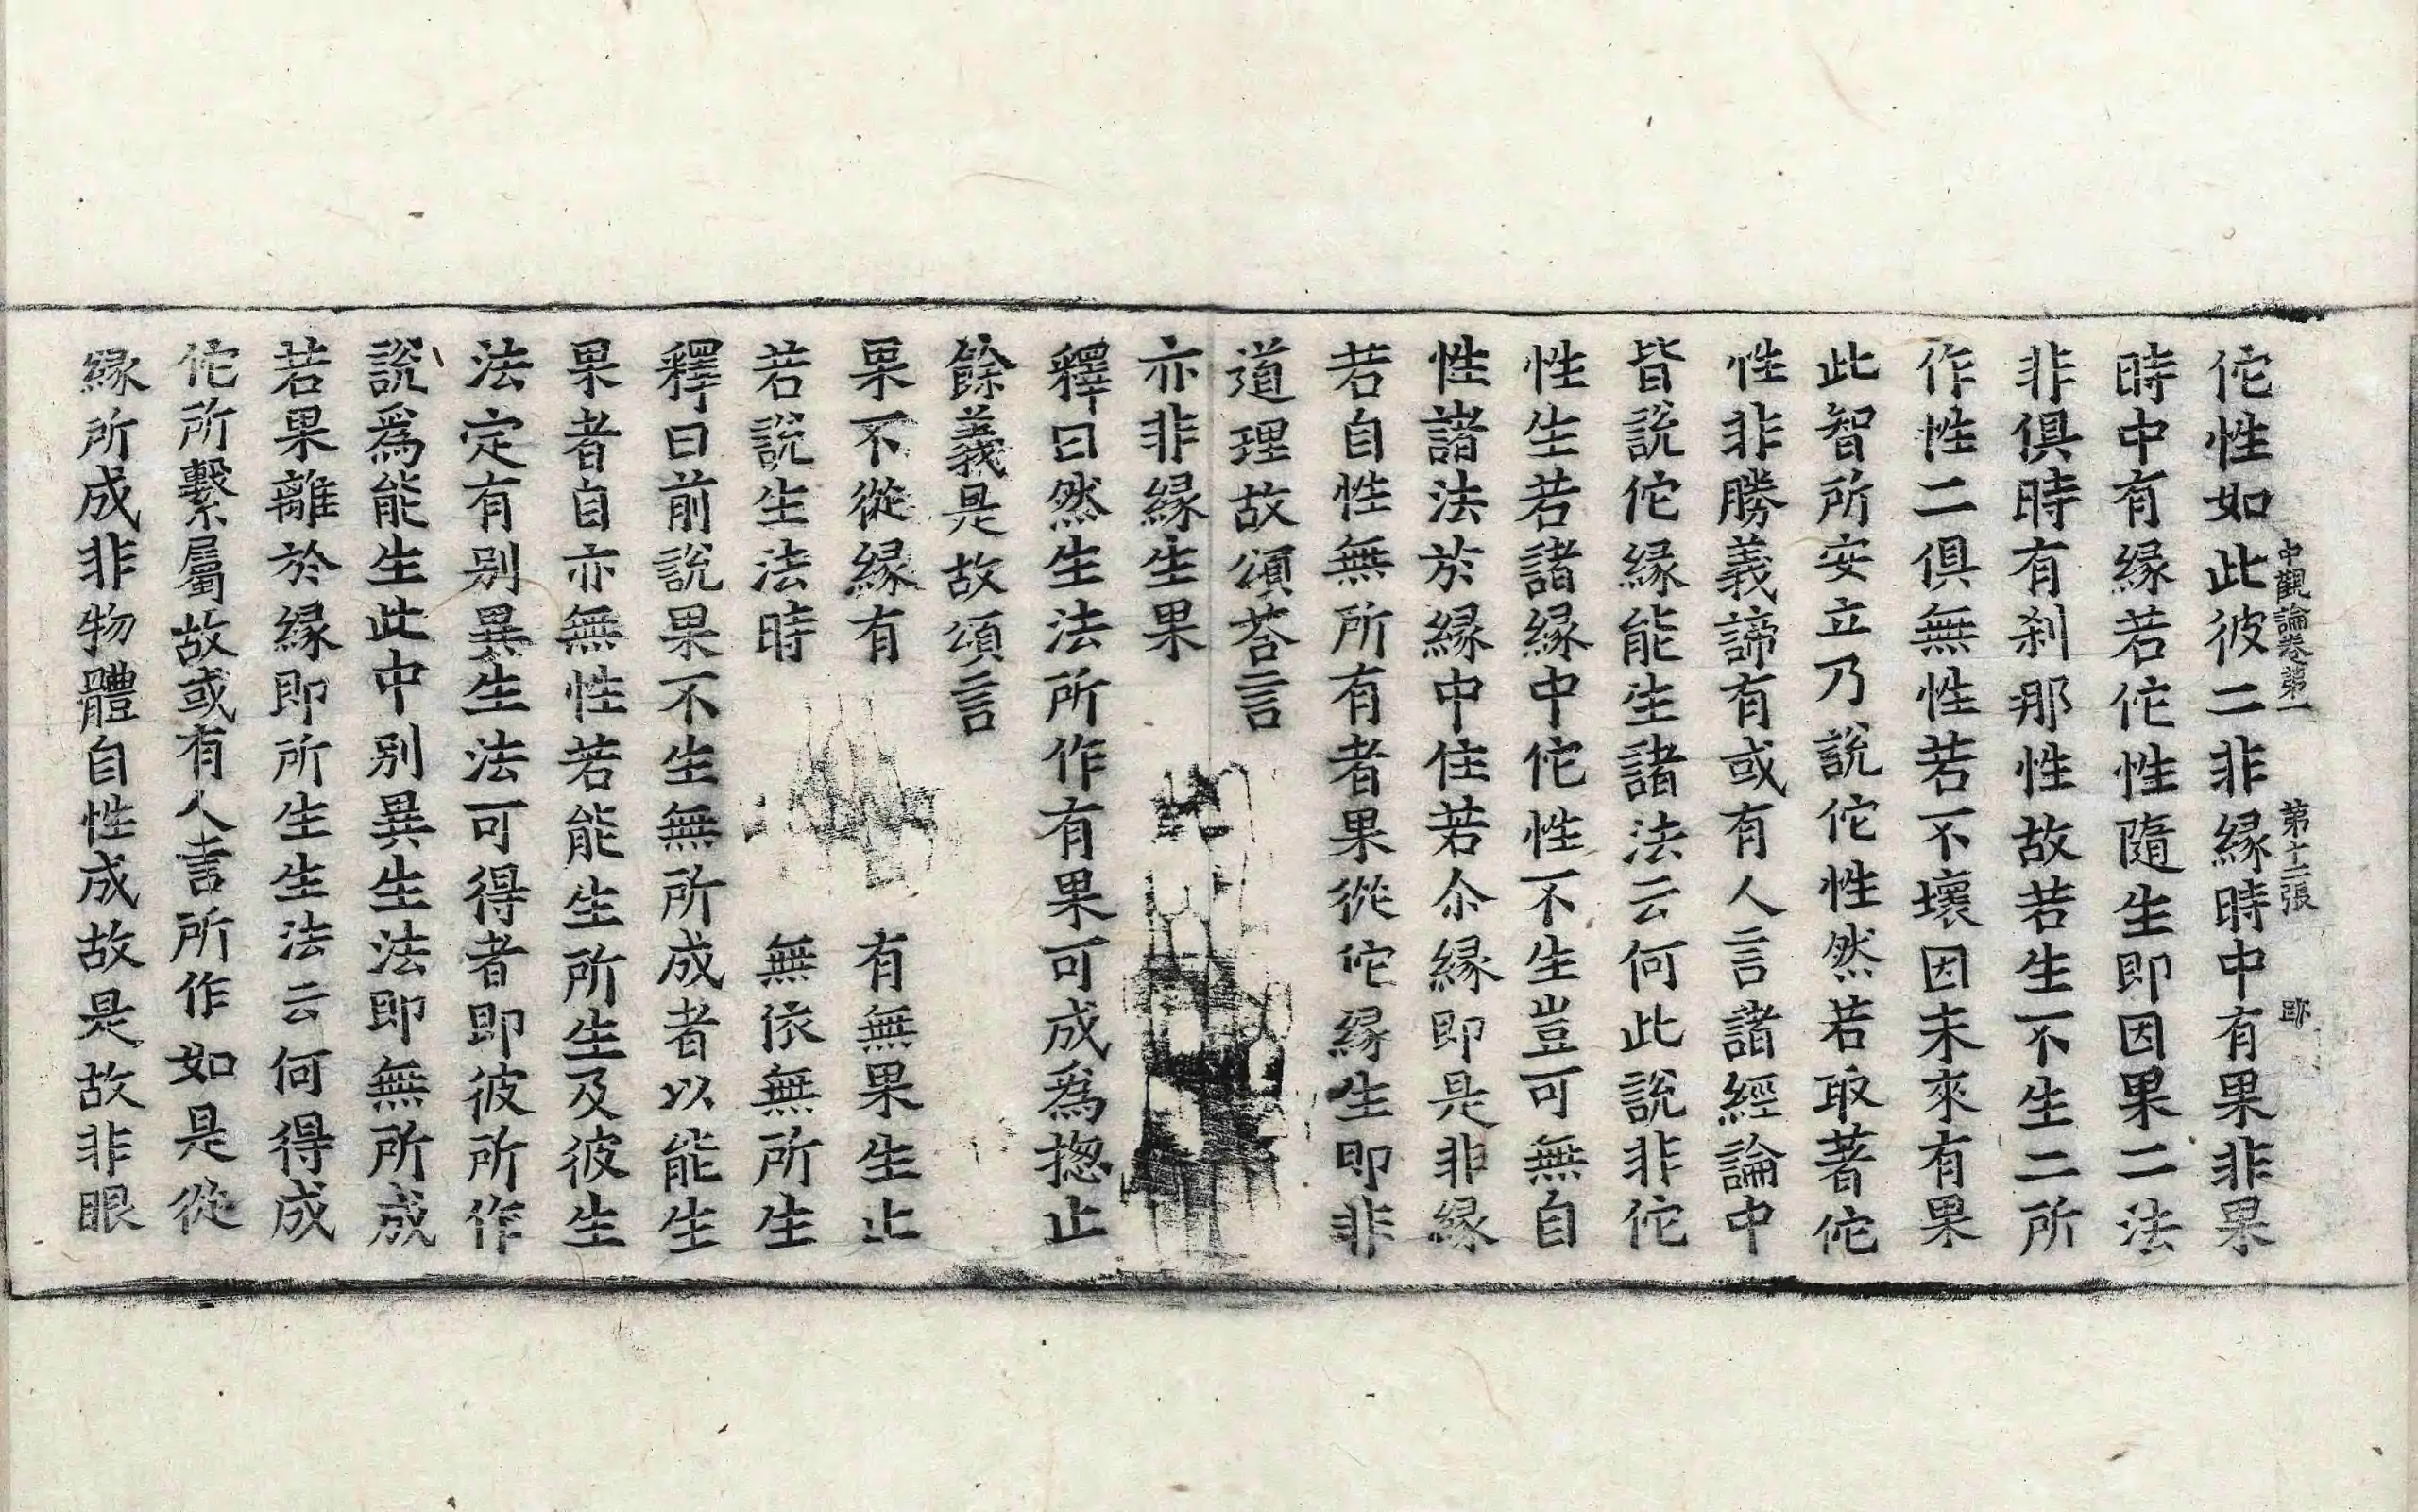 中觀論卷第一 第十二張 即
佗性如此彼二非緣時中有果非果
時中有緣若佗性隨生即因果二法
非俱時有刹那性故若生不生二所
作性二俱無性若不壞因未來有果
此智所安立乃說佗性然若取著佗
性非勝義諦有或有人言諸經論中
皆說佗緣能生諸法云何此說非佗
性生若諸緣中佗性不生豈可無自
性諸法於緣中住若尒緣即是非緣
若自性無所有者果從佗緣生即非
道理故頌荅言
亦非緣生果
釋曰然生法所作有果可成爲揔止
餘義是故頌言
果不從緣有 有無果生止
若說生法時 無依無所生
釋曰前說果不生無所成者以能生
果者自亦無性若能生所生及彼生
法定有别異生法可得者即彼所作
說爲能生此中别異生法即無所成
若果離於緣即所生生法云何得成
佗所繫屬故或有人言所作如是從
緣所成非物體自性成故是故非眼